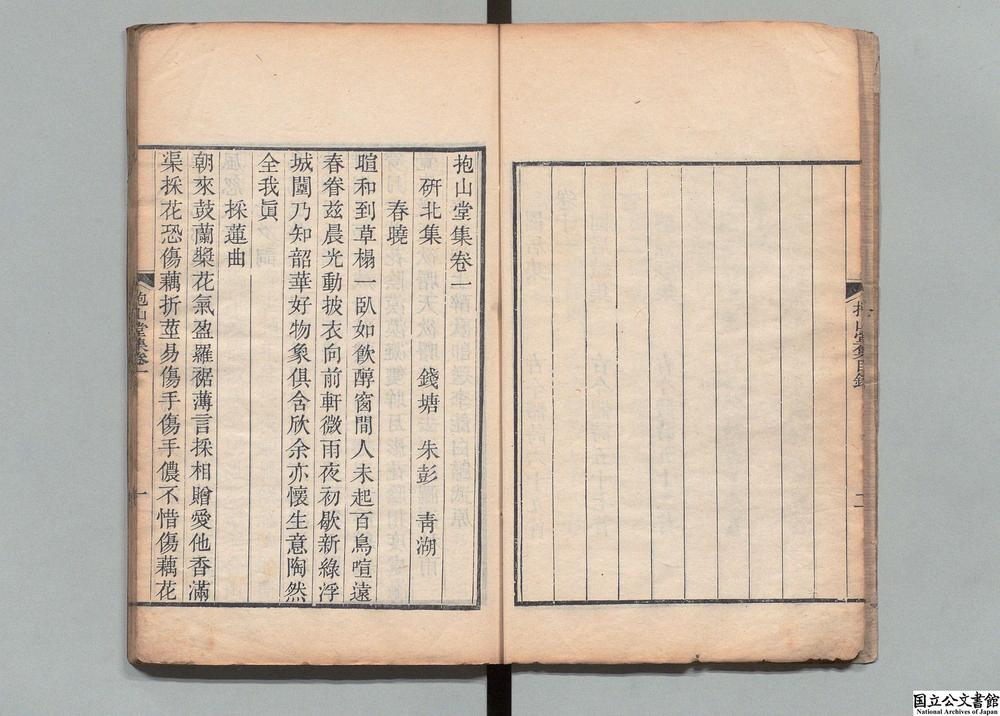 抱山堂集目錄
二
抱山堂集卷一
研北集 錢塘 朱彭 青湖
春曉
暄和到草榻一臥如飲醇窗間人未起百鳥喧遠
春眷茲晨光動披衣向前軒微雨夜初歇新綠浮
城闉乃知韶華好物象俱含欣余亦懷生意陶然
全我眞
採蓮曲
朝來鼓蘭槳花氣盈羅裾薄言採相贈愛他香滿
渠採花恐傷藕折莖易傷手傷手儂不惜傷藕花
抱山堂集卷一
一
国立公文書館
National Archives of Japan